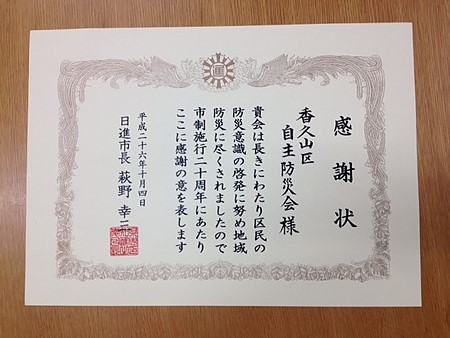 感謝状
香久山区
自主防災会様
貴会は長きにわたり区民の
防災意識の啓発に努め地域
防災に尽くされましたので
市制施行二十周年にあたり
ここに感謝の意を表します
平成二十六年十月四日
日進市長 萩野 幸三